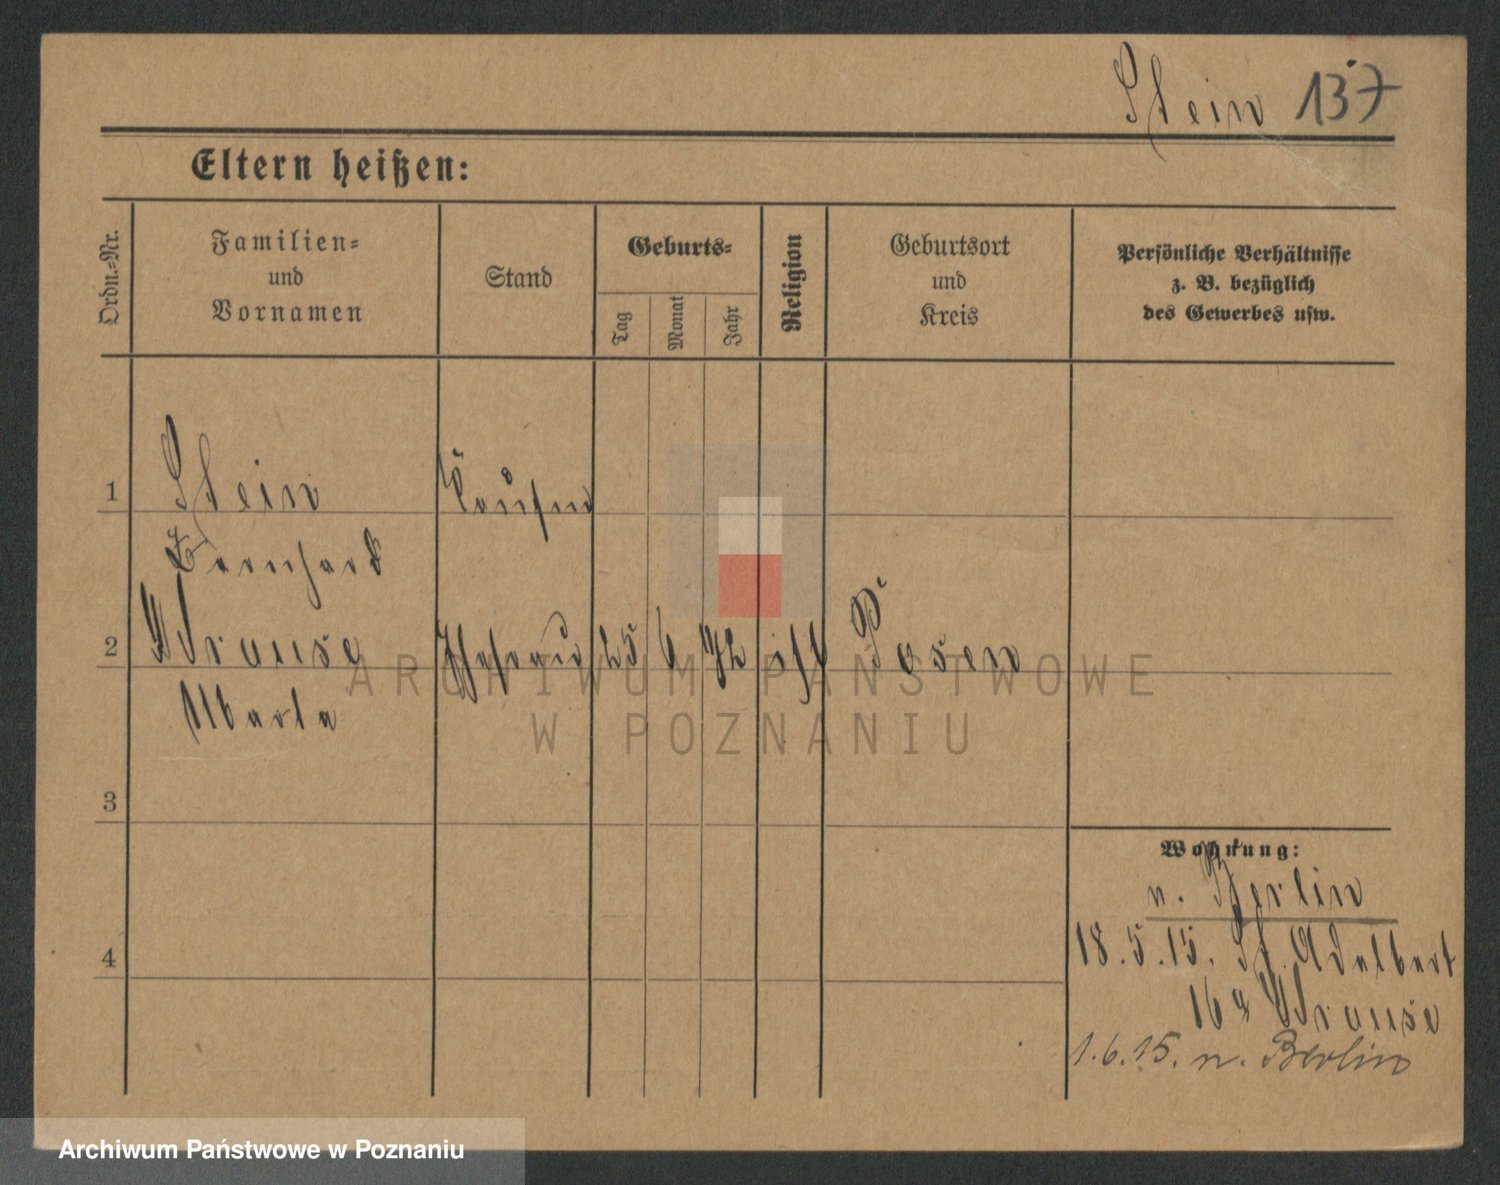 Stein 137
Eltern heißen:
Ordn.-Nr.
Familien-
und
Vornamen
Stand
Geburts-
Tag
Monat
Jahr
Religion
Geburtsort
und
Kreis
Persönliche Verhältnisse
z. B. bezüglich
des Gewerbes usw.
1
Stein
Bernhard
2
Krause
Marta
Ehefrau
25
6
Posen
3
4
Wohnung:
n. Berlin
18.5.15. St. Adalbert
16a Krause
1.6.15. n. Berlin
ARCHIWUM PAŃSTWOWE
W POZNANIU
Archiwum Państwowe w Poznaniu